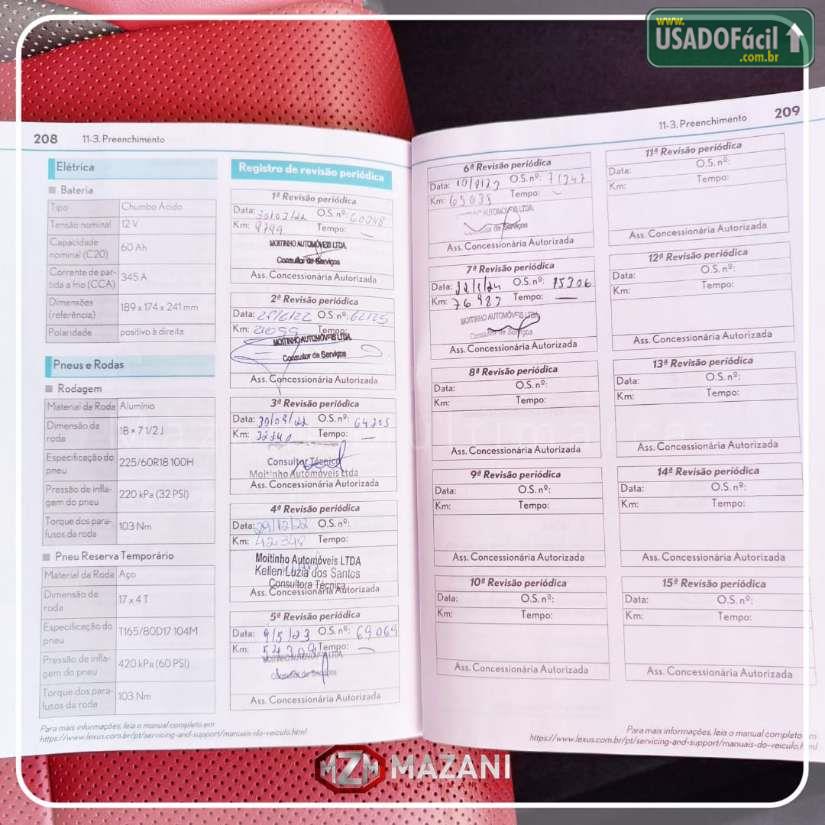 www.
USADOFácil
.com.br
208 11-3. Preenchimento
Elétrica
Bateria
Tipo Chumbo Ácido
Tensão nominal 12 V
Capacidade nominal (C20) 60 Ah
Corrente de partida a frio (CCA) 345 A
Dimensões (referência) 189 x 174 x 241 mm
Polaridade positivo à direita
Pneus e Rodas
Rodagem
Material da Roda Alumínio
Dimensão da roda 18 x 7 1/2 J
Especificação do pneu 225/60R18 100H
Pressão de inflagem do pneu 220 kPa (32 PSI)
Torque dos parafusos da roda 103 Nm
Pneu Reserva Temporário
Material da Roda Aço
Dimensão da roda 17 x 4 T
Especificação do pneu T165/80D17 104M
Pressão de inflagem do pneu 420 kPa (60 PSI)
Torque dos parafusos da roda 103 Nm
Para mais informações, leia o manual completo em
https://www.lexus.com.br/pt/servicing-and-support/manuais-do-veiculo.html
Registro de revisão periódica
1ª Revisão periódica
Data: O.S. nº: 60248
Km: 9799 Tempo:
MOITINHO AUTOMÓVEIS LTDA.
Consultor de Serviços
Ass. Concessionária Autorizada
2ª Revisão periódica
Data: O.S. nº: 62125
Km: Tempo:
MOITINHO AUTOMÓVEIS LTDA.
Consultor de Serviços
Ass. Concessionária Autorizada
3ª Revisão periódica
Data: 30/08/22 O.S. nº: 64205
Km: Tempo:
Consultor Técnico
Moitinho Automóveis Ltda
Ass. Concessionária Autorizada
4ª Revisão periódica
Data: 29/12/22 O.S. nº:
Km: 42348 Tempo:
Moitinho Automóveis LTDA
Kellen Luzia dos Santos
Consultora Técnica
Ass. Concessionária Autorizada
5ª Revisão periódica
Data: 9/5/23 O.S. nº: 69064
Km: Tempo:
Ass. Concessionária Autorizada
11-3. Preenchimento 209
6ª Revisão periódica
Data: O.S. nº: 71247
Km: 65035 Tempo:
MOITINHO AUTOMÓVEIS LTDA.
Ass. Concessionária Autorizada
7ª Revisão periódica
Data: O.S. nº: 75206
Km: 76983 Tempo:
MOITINHO AUTOMÓVEIS LTDA.
Consultor de Serviços
Ass. Concessionária Autorizada
8ª Revisão periódica
Data: O.S. nº:
Km: Tempo:
Ass. Concessionária Autorizada
9ª Revisão periódica
Data: O.S. nº:
Km: Tempo:
Ass. Concessionária Autorizada
10ª Revisão periódica
Data: O.S. nº:
Km: Tempo:
Ass. Concessionária Autorizada
11ª Revisão periódica
Data: O.S. nº:
Km: Tempo:
Ass. Concessionária Autorizada
12ª Revisão periódica
Data: O.S. nº:
Km: Tempo:
Ass. Concessionária Autorizada
13ª Revisão periódica
Data: O.S. nº:
Km: Tempo:
Ass. Concessionária Autorizada
14ª Revisão periódica
Data: O.S. nº:
Km: Tempo:
Ass. Concessionária Autorizada
15ª Revisão periódica
Data: O.S. nº:
Km: Tempo:
Ass. Concessionária Autorizada
Para mais informações, leia o manual completo em
https://www.lexus.com.br/pt/servicing-and-support/manuais-do-veiculo.html
MZM MAZANI